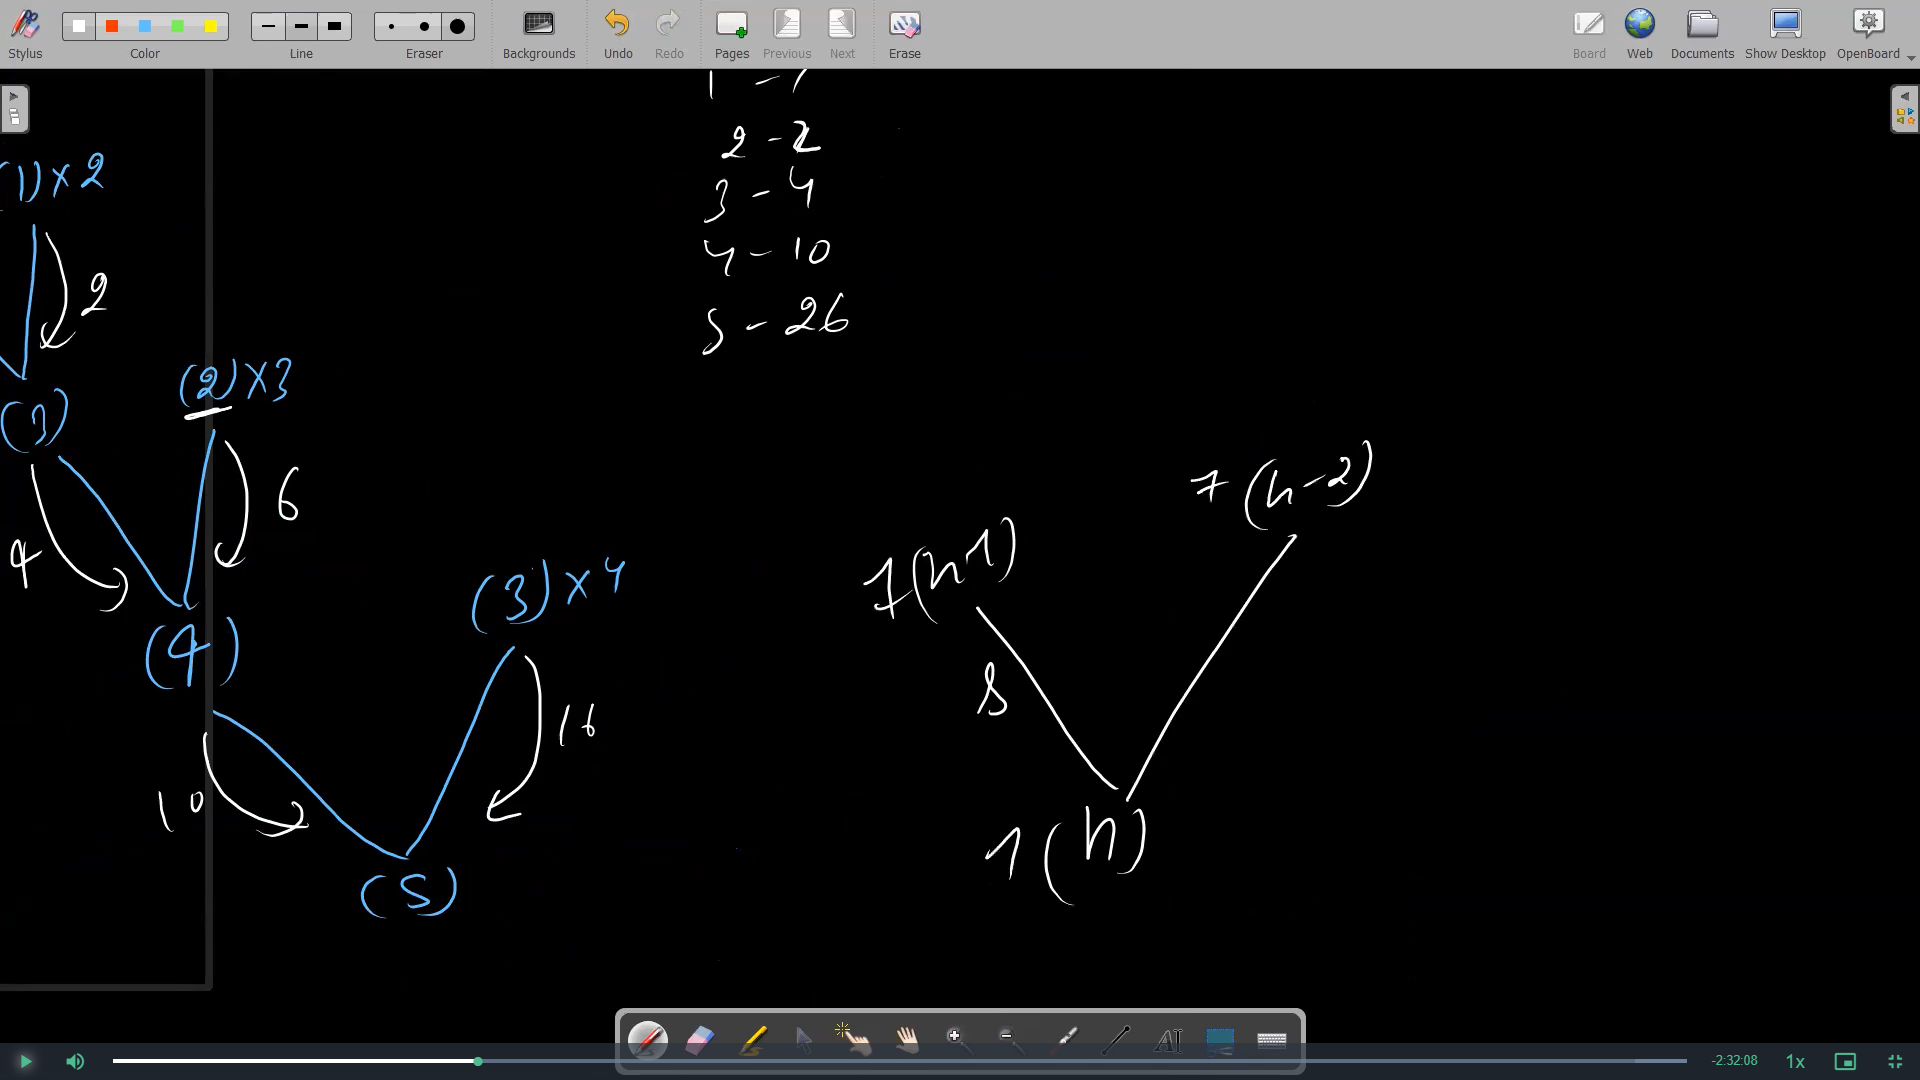 Stylus
Color
Line
Eraser
Backgrounds
Undo
Redo
Pages
Previous
Next
Erase
Board
Web
Documents
Show Desktop
OpenBoard
1 - 1
2 - 2
3 - 4
4 - 10
5 - 26
(1) x 2
2
(3)
(2) x 3
4
6
(4)
(3) x 4
10
16
(5)
7 (n-2)
7(n-1)
1 (n)
-2:32:08
1x